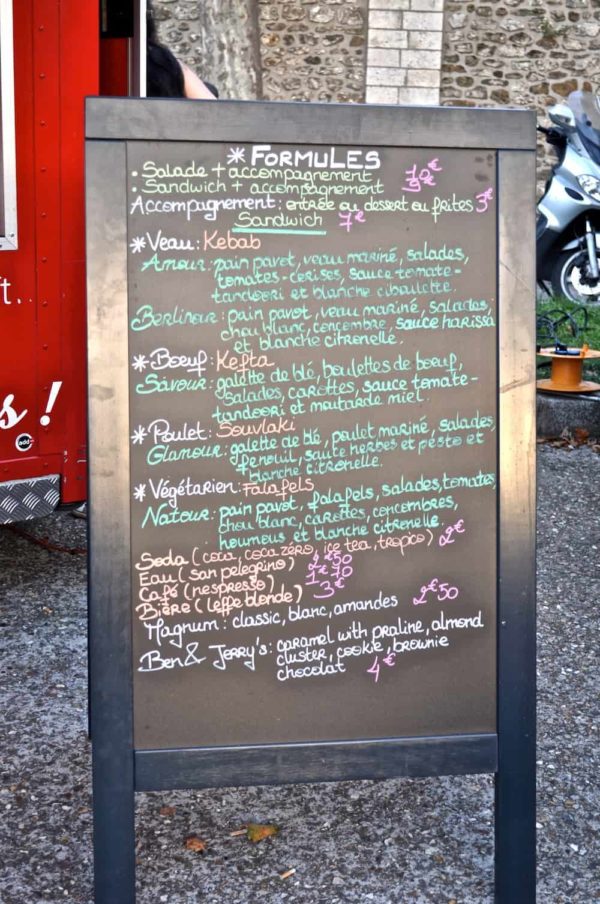 * FORMULES
. Salade + accompagnement 10€
. Sandwich + accompagnement 9€
Accompagnement : entrée ou dessert ou frites 3€
Sandwich 7€
* Veau : Kebab
Amour : pain pavot, veau mariné, salades,
tomates-cerises, sauce tomate-
tandoori et blanche ciboulette.
Berlinour : pain pavot, veau mariné, salades,
chou blanc, concombre, sauce harissa
et blanche citronelle.
* Bœuf : Kefta
Savour : galette de blé, boulettes de bœuf,
salades, carottes, sauce tomate-
tandoori et moutarde miel.
* Poulet : Souvlaki
Glamour : galette de blé, poulet mariné, salades,
fenouil, saute herbes et pesto et
blanche citronelle.
* Végétarien : Falafels
Natour : pain pavot, falafels, salades, tomates,
chou blanc, carottes, concombres,
houmous et blanche citronelle.
Soda (coca, coca zéro, ice tea, tropico) 2€
Eau (san pelegrino) 2€50
Café (nespresso) 1€70
Bière (leffe blonde) 3€
Magnum : classic, blanc, amandes 2€50
Ben & Jerry's : caramel with praline, almond
cluster, cookie, brownie
chocolat 4€
t...
s !